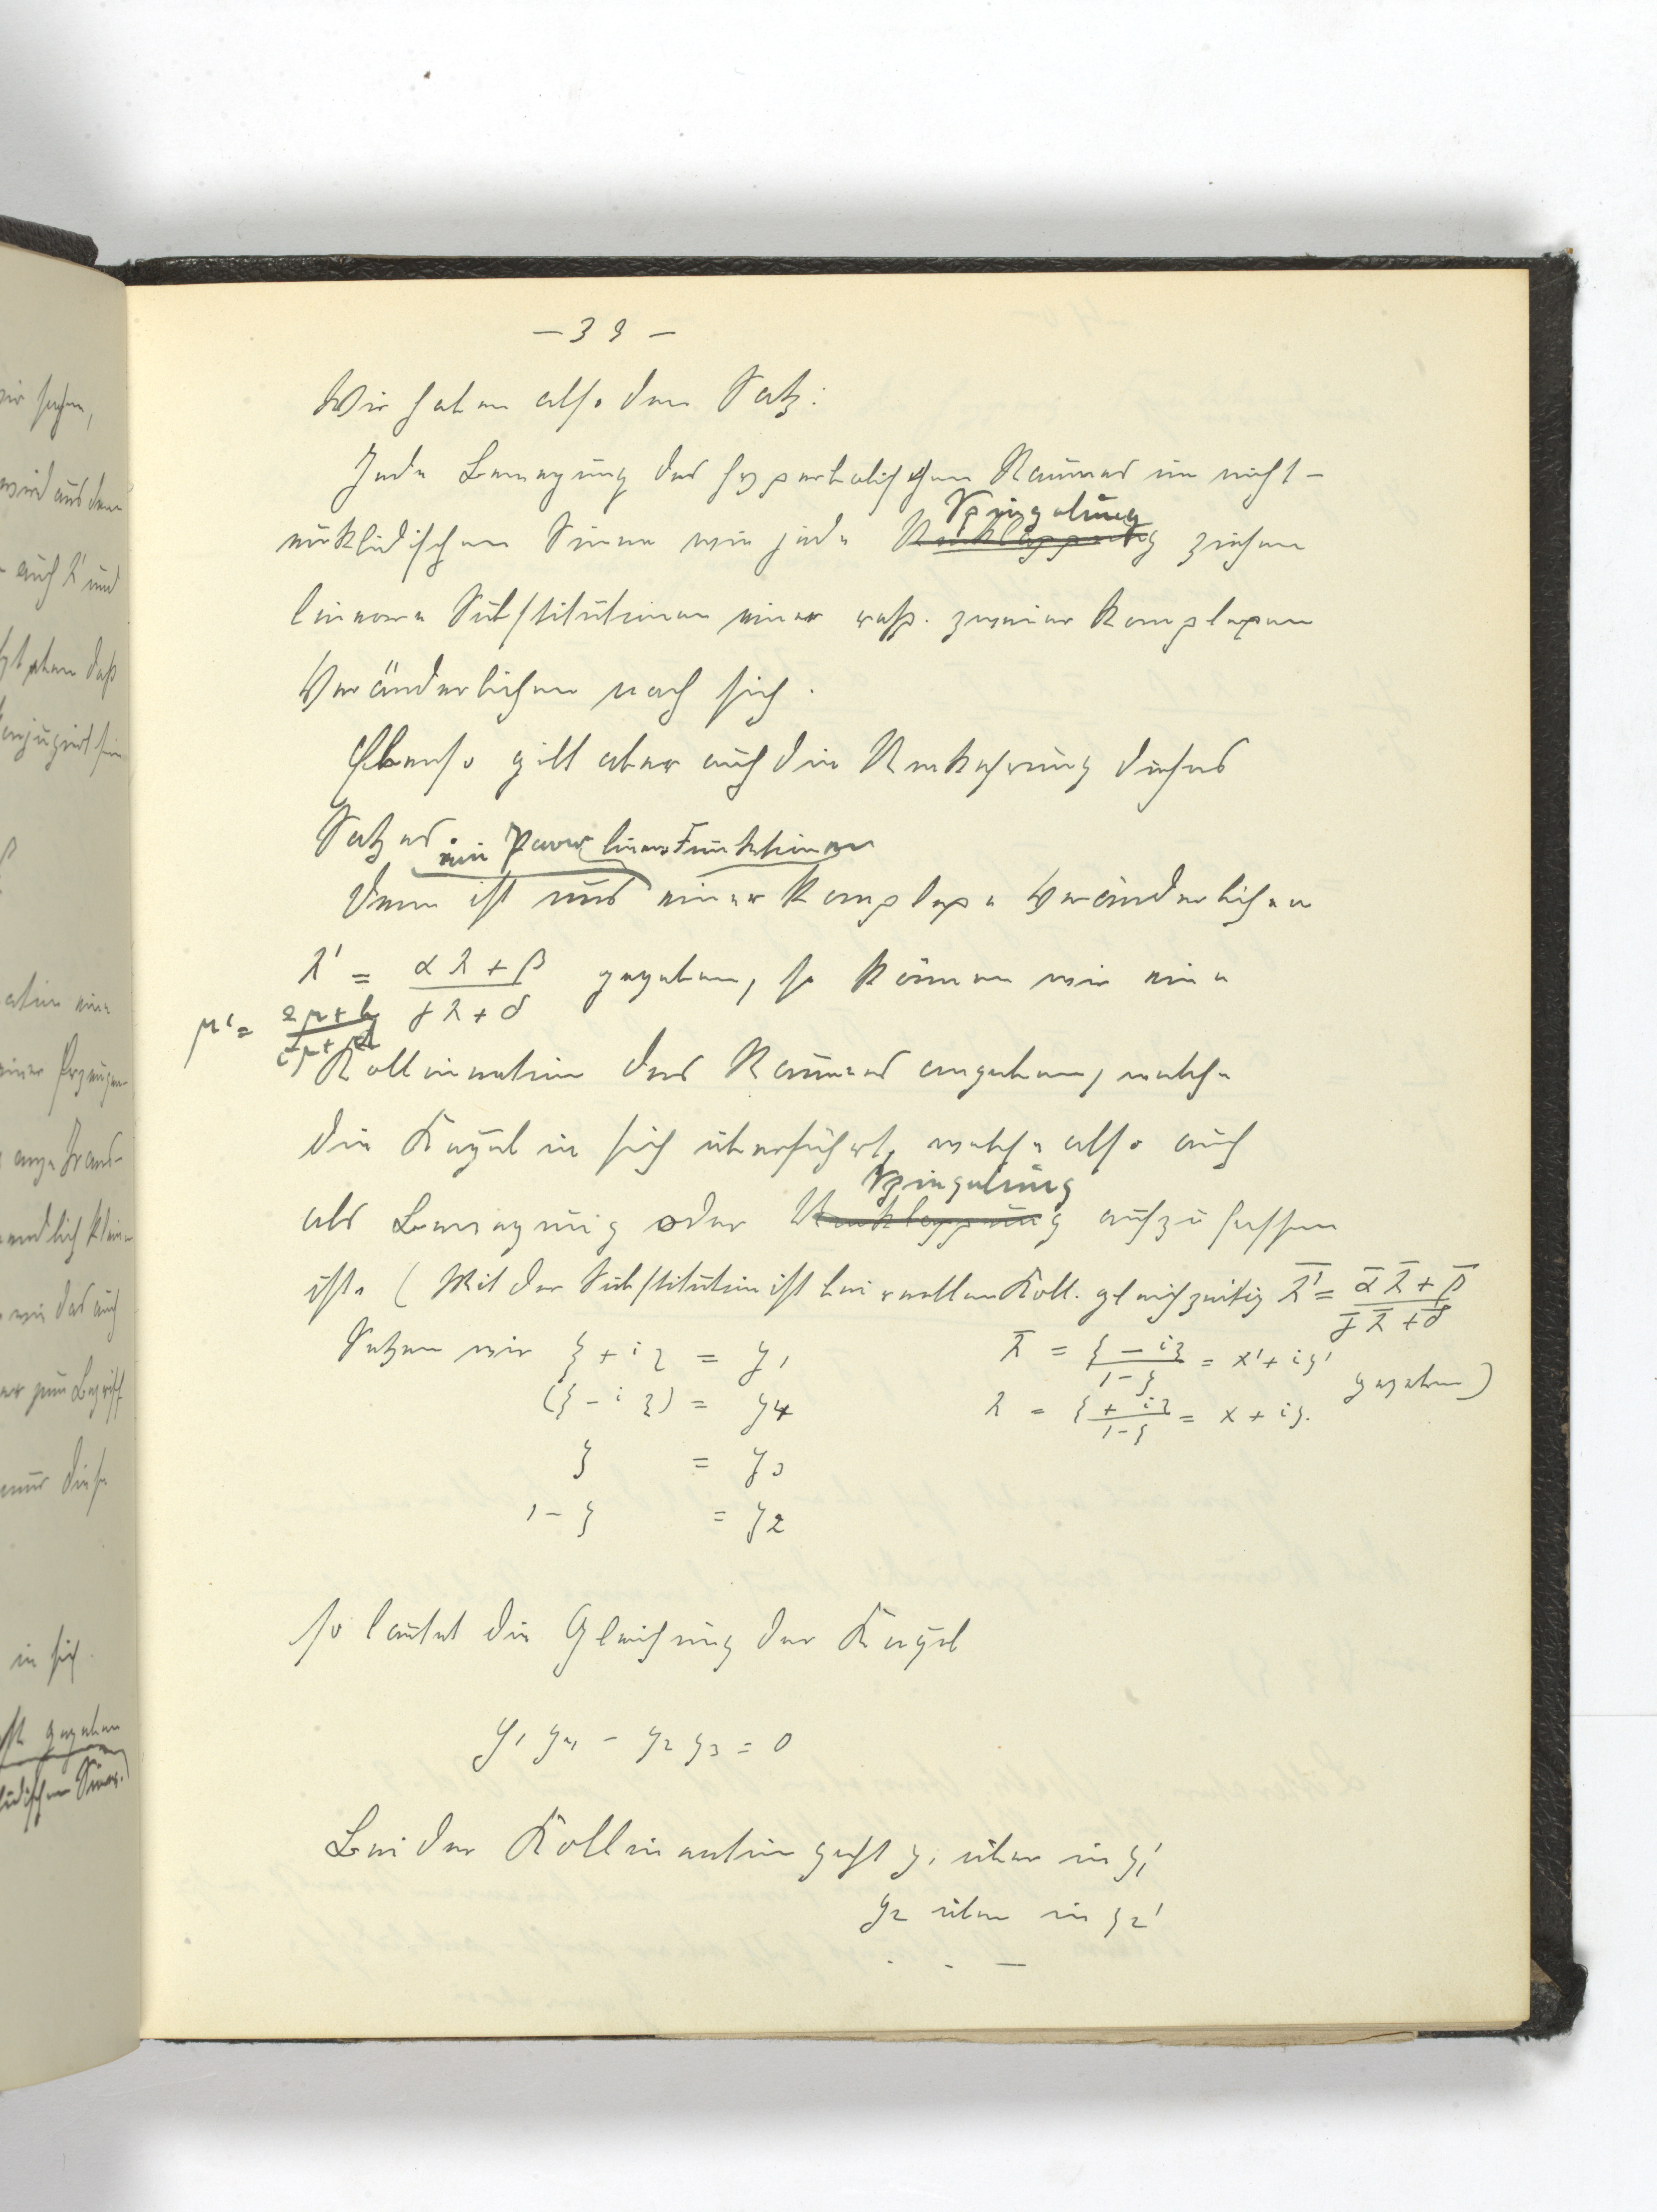 — 39 —
Wir haben also den Satz:
Jede Bewegung des hyperbolischen Raumes im nicht-
Spiegelung
euklidischen Sinne wie jede Umklappung ziehen
lineare Substitutionen einer resp. zweier komplexen
Veränderlichen nach sich.
Ebenso gilt aber auch die Umkehrung dieses
Satzes.
ein Paar linearer Funktionen
Denn ist uns einer komplexe Veränderlichen
λ' = (αλ + β)/(γλ + δ) gegeben, so können wir eine
μ' =
Kollineation des Raumes angeben, welche
die Kugel in sich überführt, welche also auch
Spiegelung
als Bewegung oder Umklappung aufzufassen
ist. (Mit der Substitution ist bei reellen Koll. gleichzeitig λ̄' = (ᾱ λ̄ + β̄)/(γ̄ λ̄ + δ̄)
Setzen wir ξ + iη = y₁
λ̄ = (ξ - iη)/(1-ζ) = x' + iy'
gegeben)
(ξ - iη) = y₄
λ = (ξ + iη)/(1-ζ) = x + iy.
ζ = y₃
1 - ζ = y₂
so lautet die Gleichung der Kugel
y₁ y₄ - y₂ y₃ = 0
Bei der Kollineation geht y₁ über in y₁'
y₂ über in y₂'
. - —